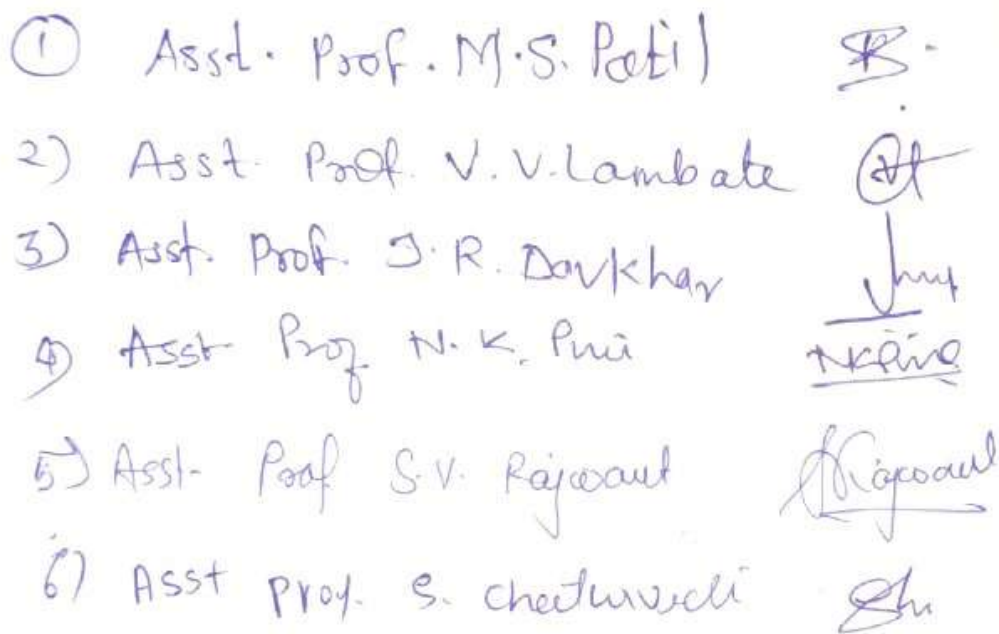 ① Asst. Prof. M.S. Patil
2) Asst. Prof. V.V. Lambate
3) Asst. Prof. J.R. Davkhar
4) Asst Prof N.K. Puri NKPuri
5) Asst- Prof S.V. Rajwant SRajwant
6) Asst Prof. S. Chaturvedi